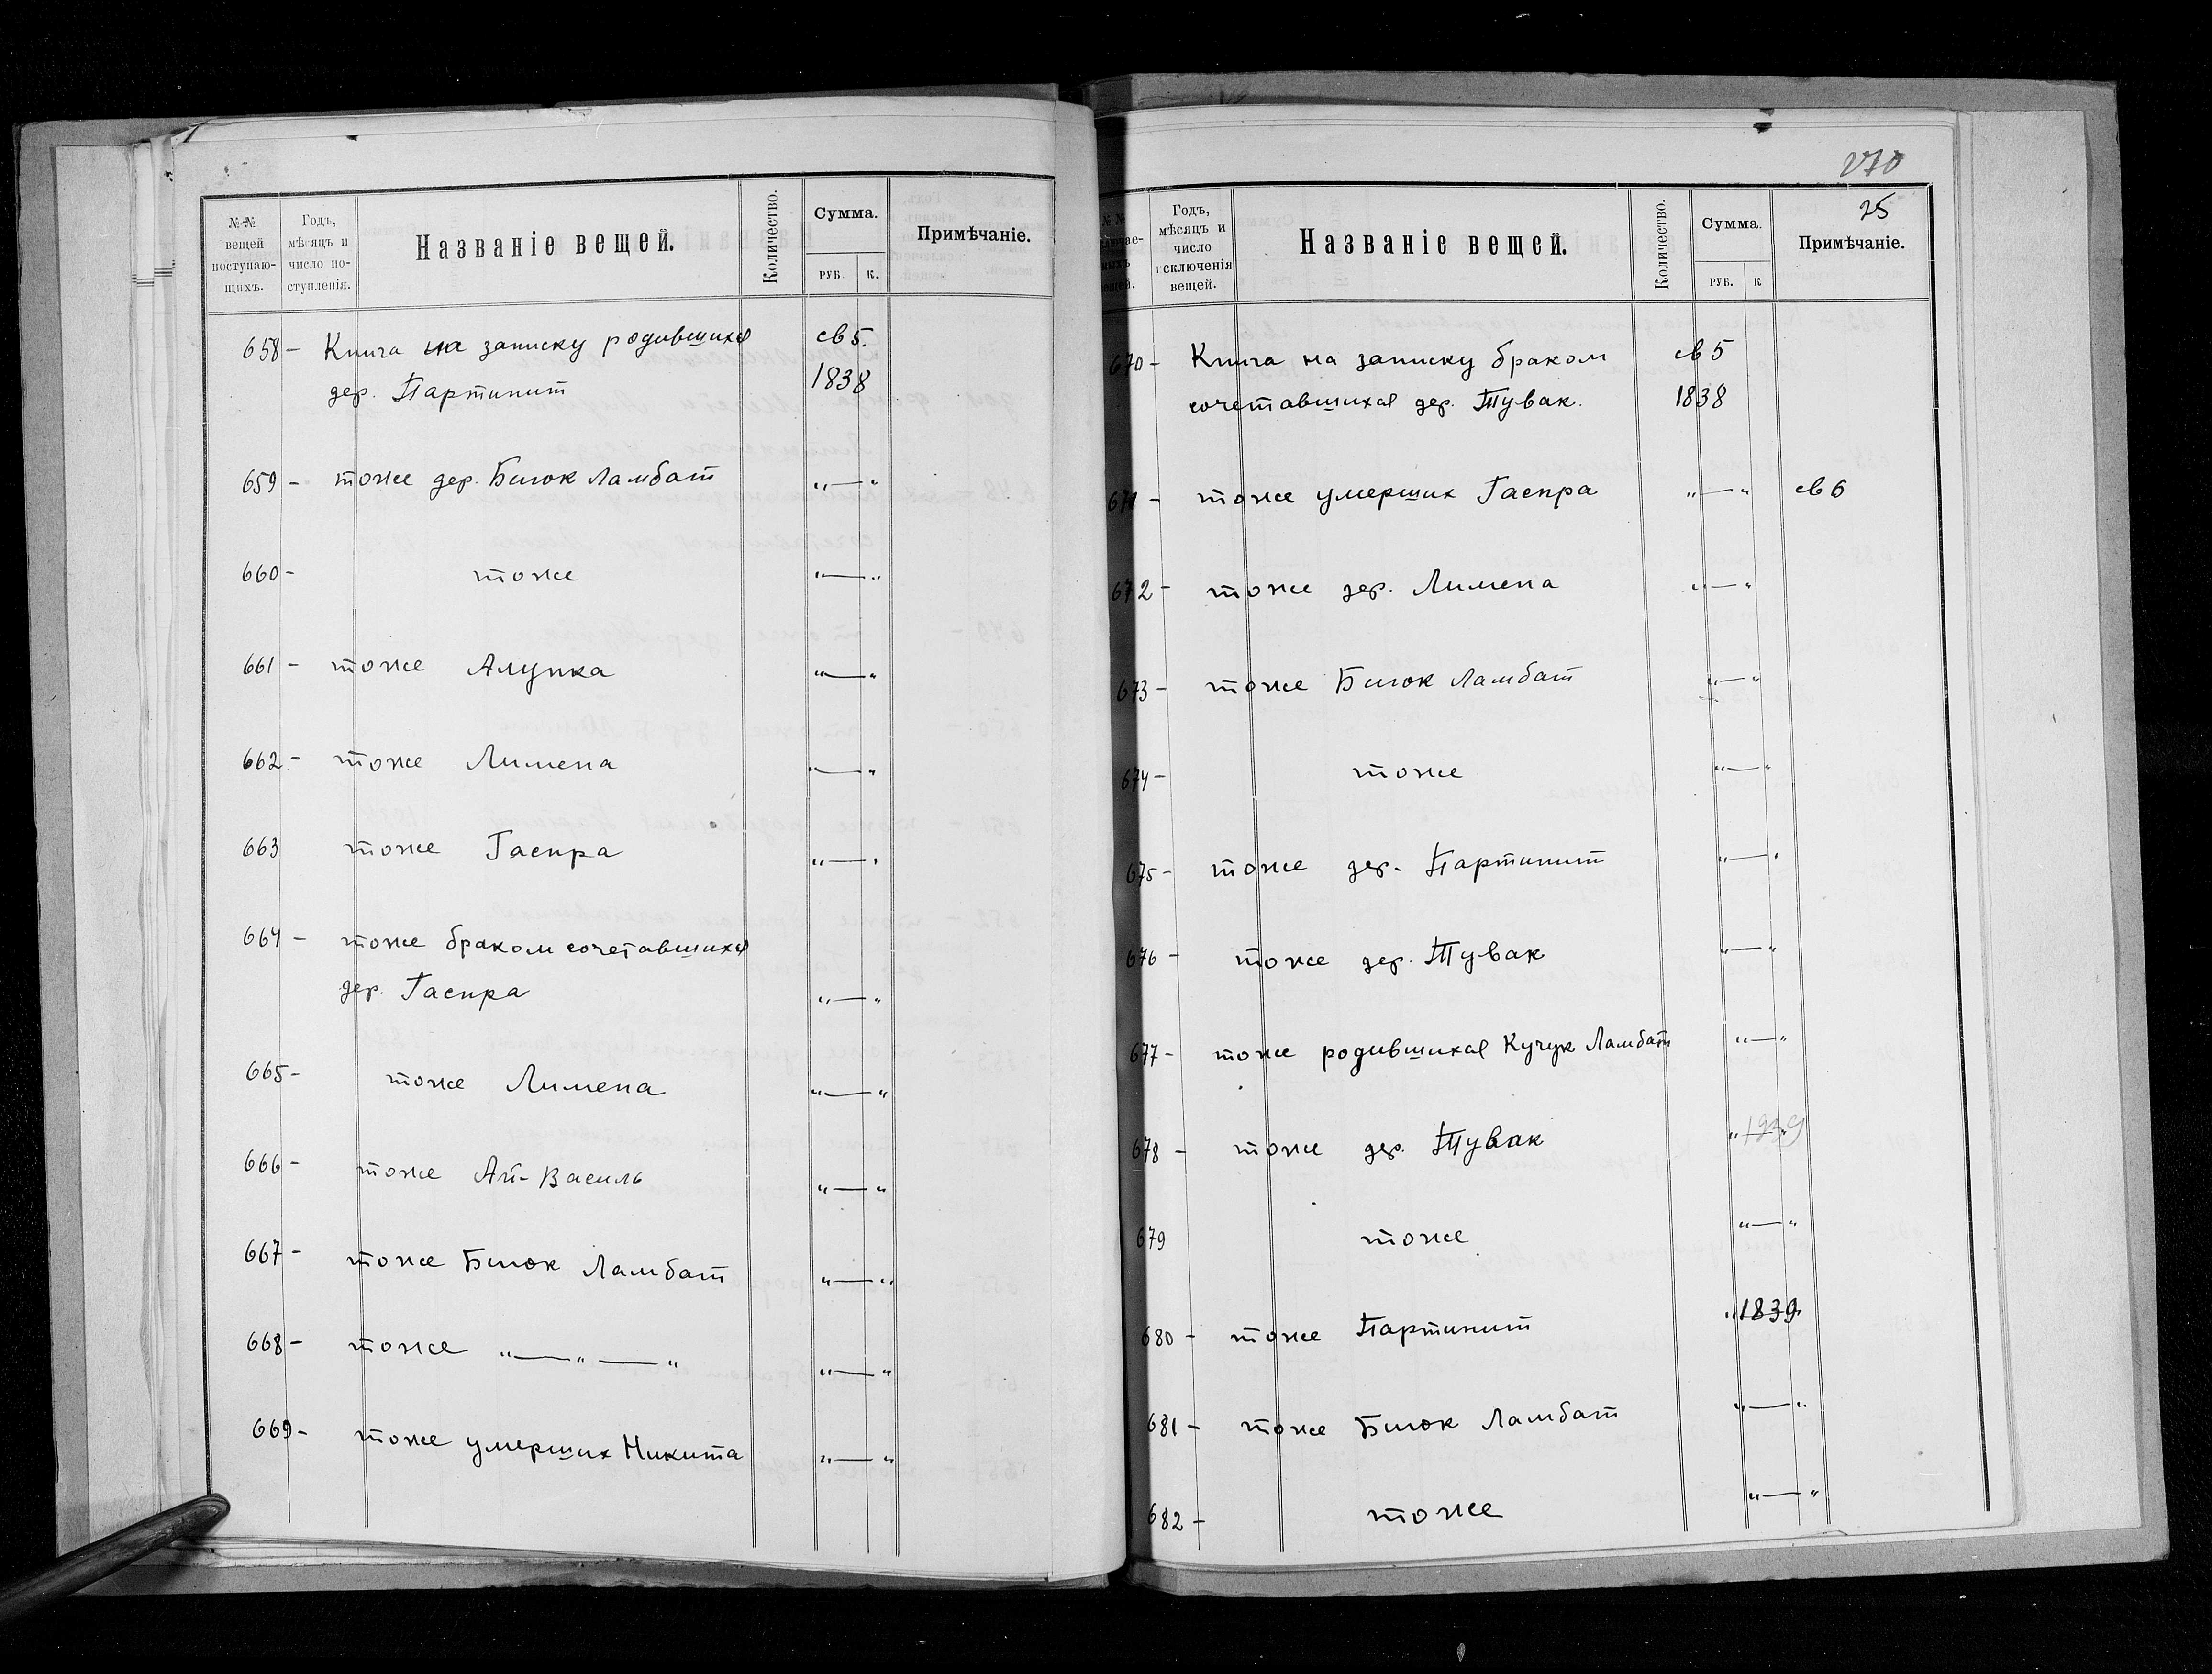 №№ вещей поступаю-щихъ.
Годъ, мѣсяцъ и число по-ступленія.
Названіе вещей.
Количество.
Сумма.
РУБ. К.
Примѣчаніе.
658 – Книга на записку родившихся св 5.
дер. Партинит 1838
659 – тоже дер. Биюк Ламбат „ — "
660 – тоже „ — "
661 – тоже Алупка „ — "
662 – тоже Лимена „ — "
663 тоже Гаспра „ — "
664 – тоже браком сочетавшихся
дер. Гаспра „ — "
665 – тоже Лимена „ — "
666 – тоже Ай-Василь „ — "
667 – тоже Биюк Ламбат „ — "
668 – тоже „ — " — " „ — "
669 – тоже умерших Никита „ — "
270
25
Годъ, мѣсяцъ и число исключенія вещей.
Названіе вещей.
Количество.
Сумма.
РУБ. К
Примѣчаніе.
670 – Книга на записку браком св 5
сочетавшихся дер. Тувак. 1838
671 – тоже умерших Гаспра „ — " св 6
672 – тоже дер. Лимена „ — "
673 – тоже Биюк Ламбат „ — "
674 – тоже „ — "
675 – тоже дер. Партинит „ — "
676 – тоже дер. Тувак „ — "
677 – тоже родившихся Кучук Ламбат „ — "
678 – тоже дер. Тувак „ — "
679 тоже „ — "
680 – тоже Партинит 1839
681 – тоже Биюк Ламбат „ — "
682 – тоже „ — "